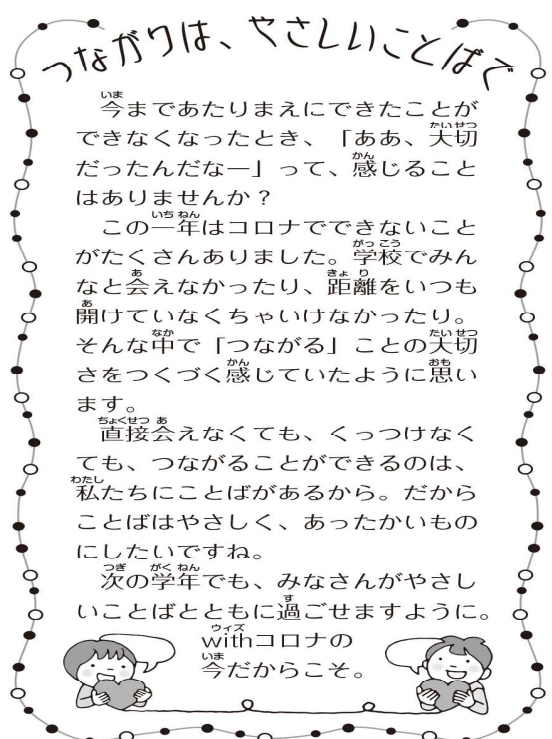 つながりは、やさしいことばで
今まであたりまえにできたことが
できなくなったとき、「ああ、大切
だったんだなー」って、感じること
はありませんか？
この一年はコロナでできないこと
がたくさんありました。学校でみん
なと会えなかったり、距離をいつも
開けていなくちゃいけなかったり。
そんな中で「つながる」ことの大切
さをつくづく感じていたように思い
ます。
直接会えなくても、くっつけなく
ても、つながることができるのは、
私たちにことばがあるから。だから
ことばはやさしく、あったかいもの
にしたいですね。
次の学年でも、みなさんがやさし
いことばとともに過ごせますように。
withコロナの
今だからこそ。